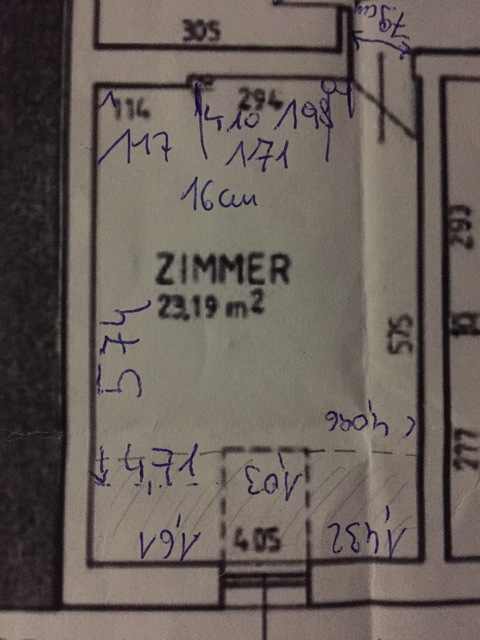 305
79cm
114
294
410 198
117
171
16cm
ZIMMER
23,19 m²
293
574
575
4,096
277
103
1,61
405
1,432